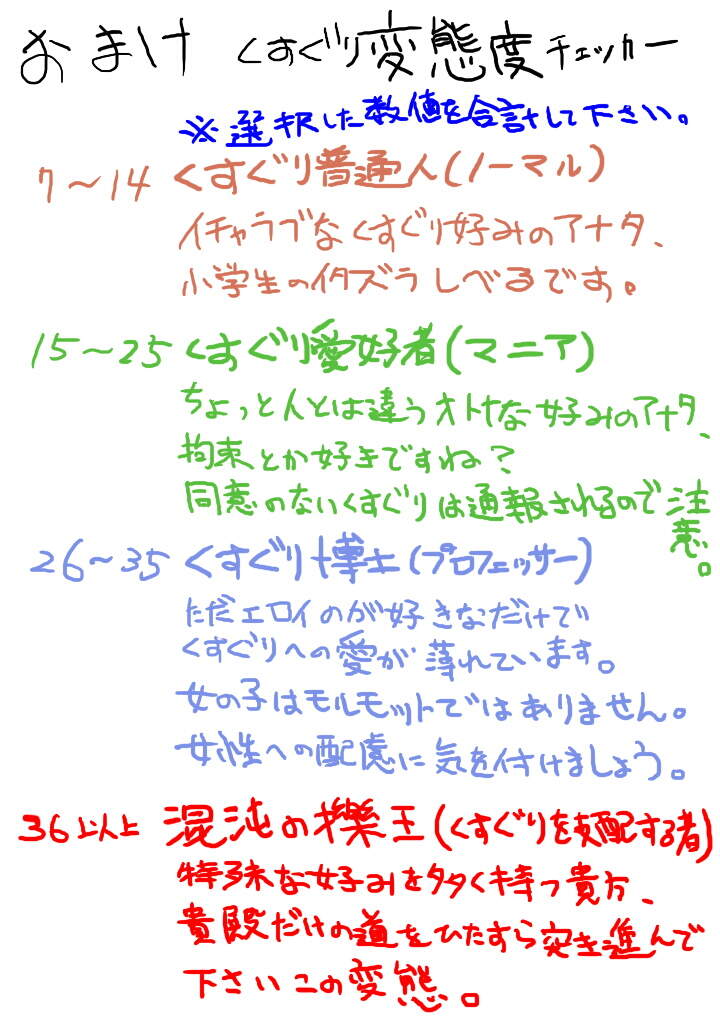 おまけ くすぐり変態度チェッカー
※選択した数値を合計して下さい。
7〜14 くすぐり普通人(ノーマル)
イチャラブなくすぐり好みのアナタ、
小学生のイタズラしべるです。
15〜25 くすぐり愛好者(マニア)
ちょっと人とは違うオトナな好みのアナタ、
拘束とか好きですね?
同意のないくすぐりは通報されるので注意。
26〜35 くすぐり博士(プロフェッサー)
ただエロイのが好きなだけで
くすぐりへの愛が薄れています。
女の子はモルモットではありません。
女性への配慮に気を付けましょう。
36以上 混沌の擽王(くすぐりを支配する者)
特殊な好みを多く持つ貴方、
貴殿だけの道をひたすら突き進んで
下さいこの変態。